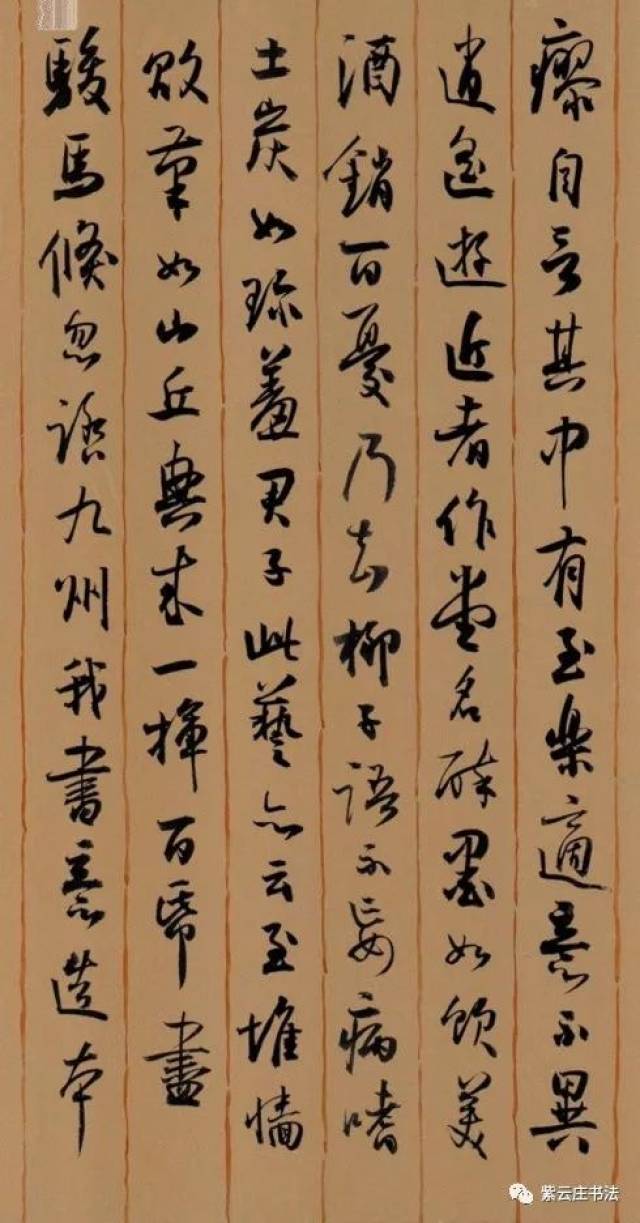 瘳自言其中有至樂適意不異
逍遙遊近者作堂名醉墨如飲美
酒銷百憂乃知柳子語不妄病嗜
土炭如珍羞君子此藝亦云至堆墻
敗筆如山丘興來一揮百帋盡
駿馬倏忽踏九州我書意造本
紫云庄书法